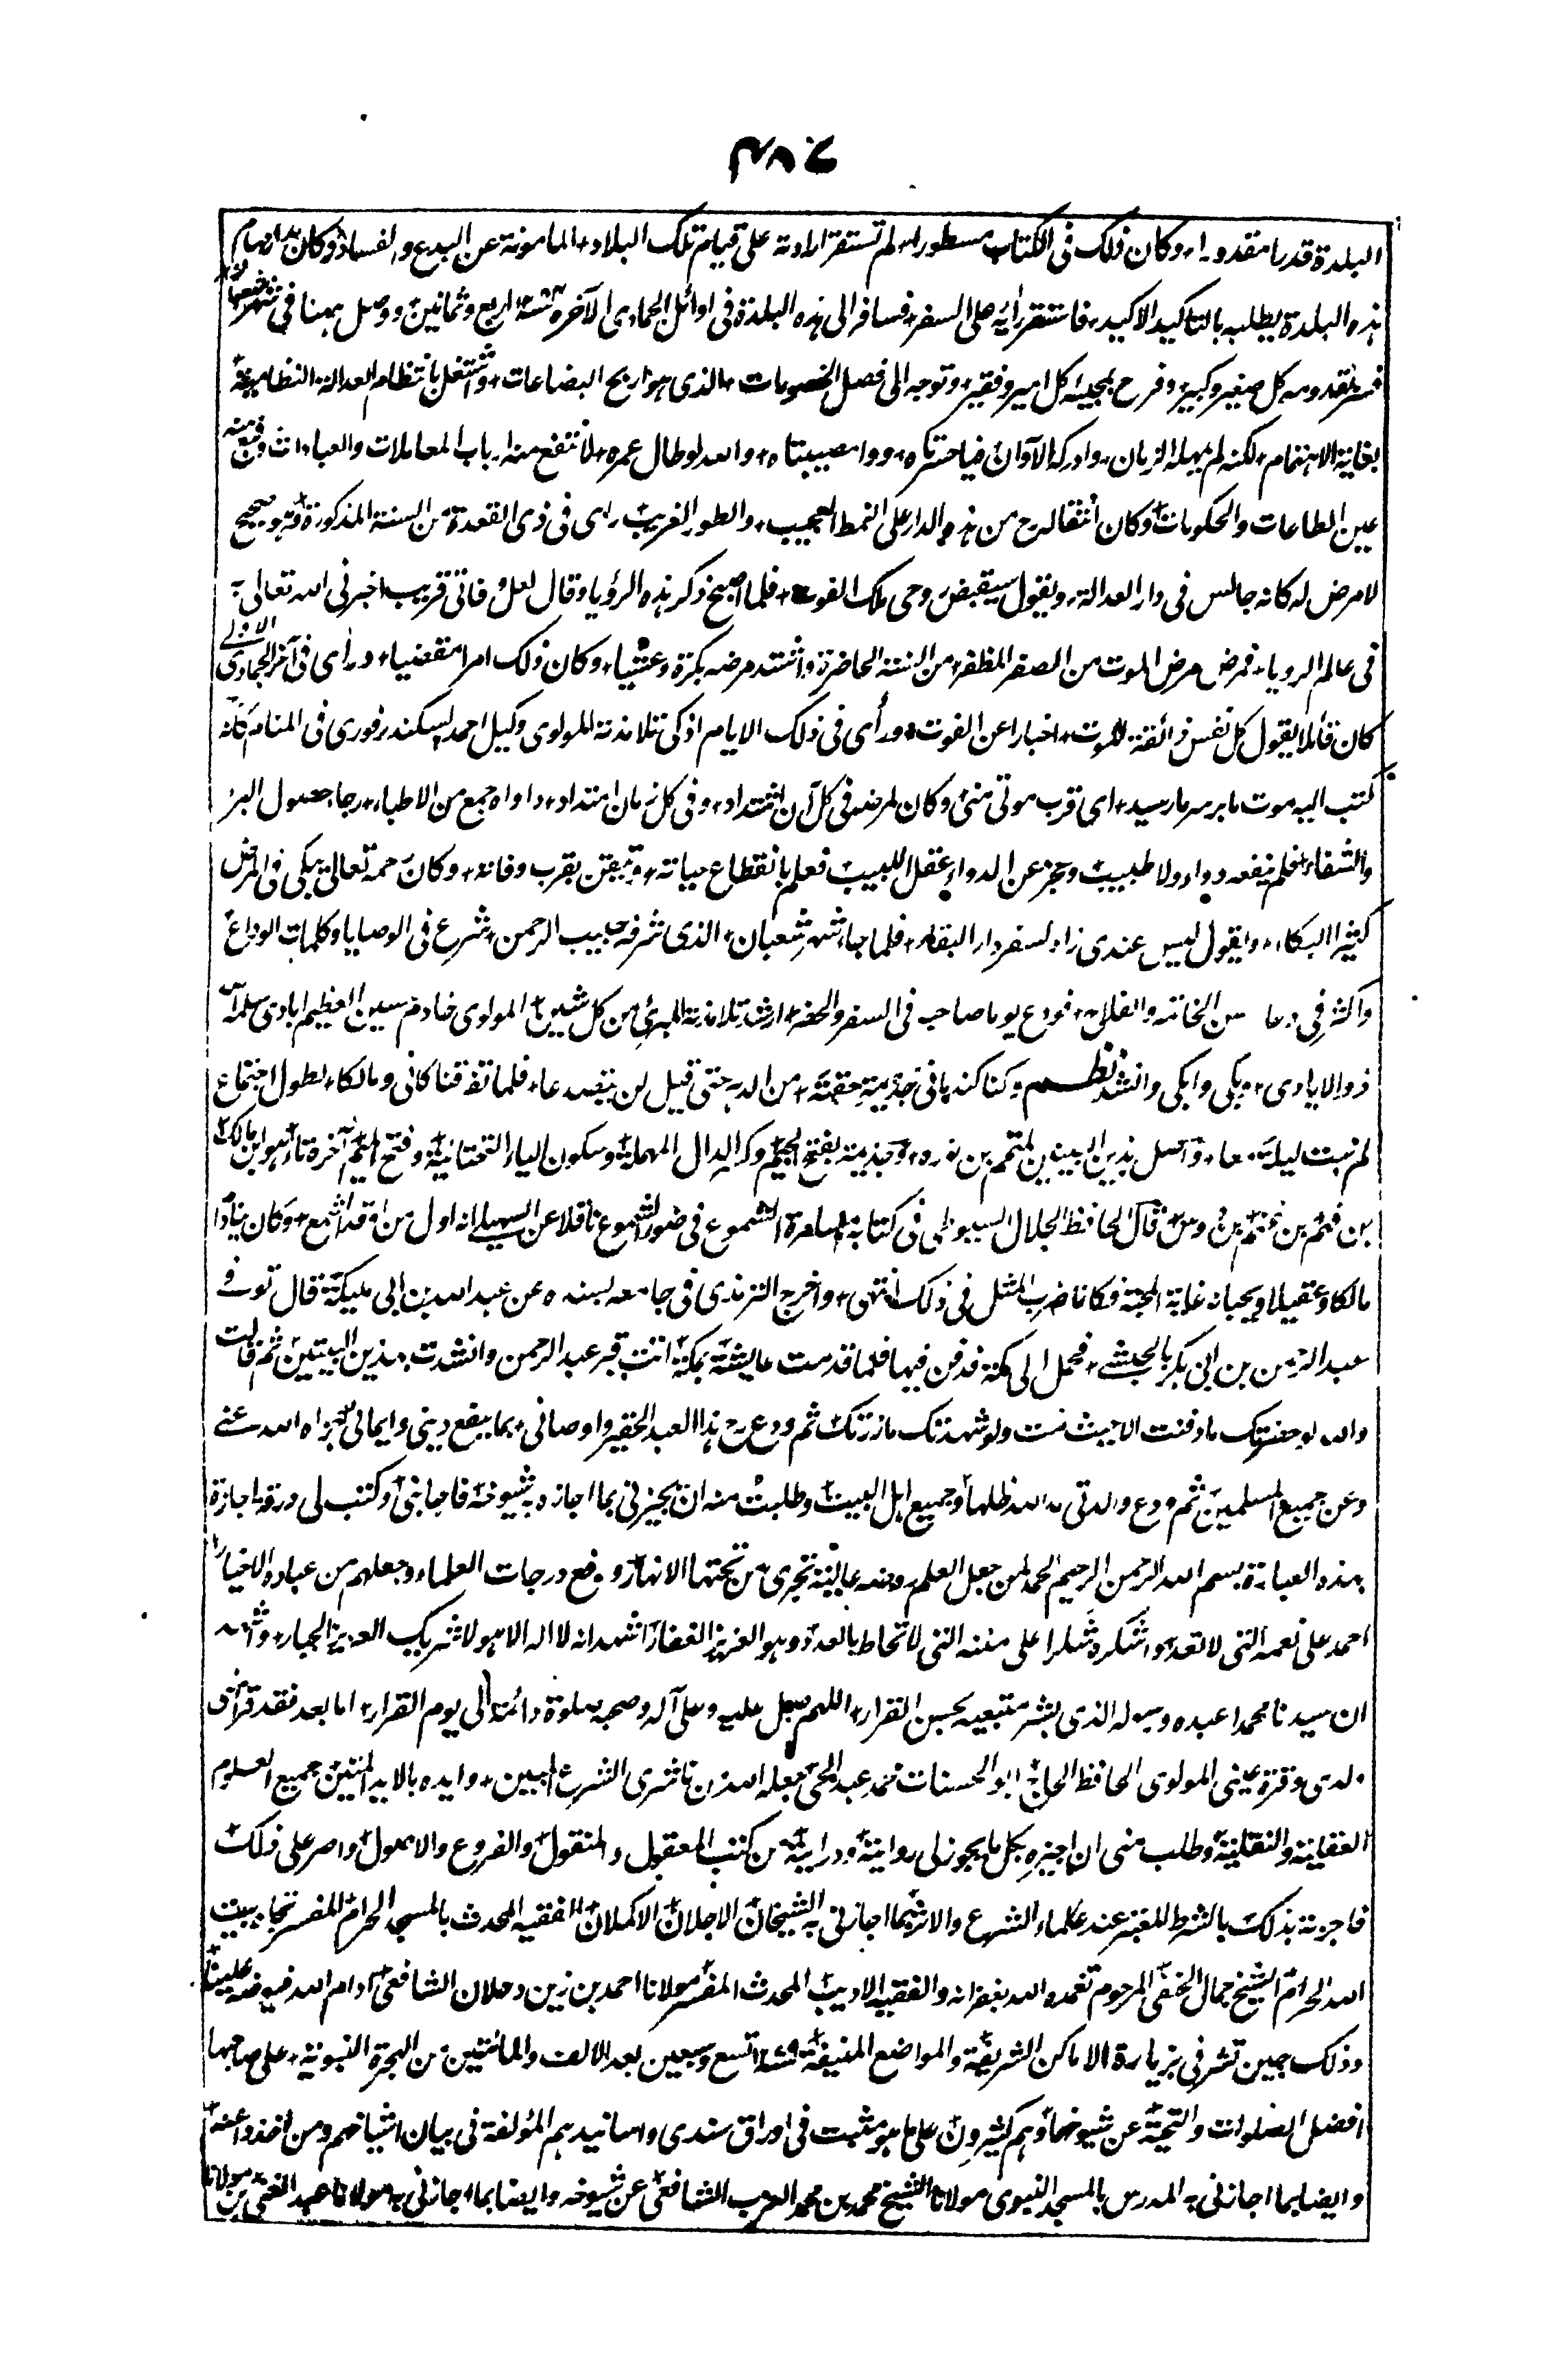 البلدة قدرا مقدورا وكان ذلك فى الكتاب مسطورا لم تستقر ارادته على قيام تلك البلاد المامونة عن البدع والفساد وكان مدار مهام
هذه البلدة يطلبه بالتاكيد الاكيد فاستقر رأيه على السفر فسافر الى هذه البلدة فى اوائل الجمادى الآخره سنة اربع وثمانين ووصل ههنا فى
فسر بقدومه كل صغير وكبير وفرح بمجيئه كل امير وفقير وتوجه الى فصل الخصومات الذى هو اربح البضاعات واشتغل بانتظام العدالة النظامية
بغاية الاهتمام لكنه لم يمهله الزمان وادركه الآوان فياحسرتاه ووامصيبتاه والله لو طال عمره لانتفع منه ارباب المعاملات والعبادات
عين الطاعات والحكومات وكان انتقاله رح من هذه الدار على النمط العجيب والطور الغريب راى فى ذى القعدة من السنة المذكورة وهو صحيح
لا مرض له كانه جالس فى دار العدالة ويقول سيقبض روحى ملك الفوت فلما اصبح ذكر هذه الرؤيا وقال لعل وفاتى قريب اخبرنى الله تعالى به
فى عالم الرويا فمرض مرض الموت من الصفر المظفر من السنة الحاضرة واشتد مرضه بكرة وعشيا وكان ذلك امرا مقضيا ورأى فى آخر الجمادى الاولى
كان قائلا يقول كل نفس ذائقة الموت اخبارا عن الفوت ورأى فى ذلك الايام اذكى تلامذته المولوى وكيل احمد السكندرفورى فى المنام كأنه
كتب اليه موت ما بر سر ما رسيد اى قرب موتى منى وكان لمرضه فى كل آن اشتداد وفى كل زمان امتداد داواه جمع من الاطباء رجاء حصول البرء
والشفاء فلم ينفعه دواء ولا طبيب وعجز عن الدواء عقل اللبيب فعلم بانقطاع حياته وتيقن بقرب وفاته وكان رحمه تعالى يبكى فى المرض
كثير البكاء ويقول ليس عندى زاد لسفر دار البقاء فلما جاء شهر شعبان الذى شرفه حبيب الرحمن شرع فى الوصايا وكلمات الوداع
واكثر فى دعاء حسن الخاتمه والفلاح فودع يوما صاحبه فى السفر والحضر ارشد تلامذته المبرئ من كل شين المولوى خادم حسين العظيم ابادى سلمه الله
ذو الايادى وبكى وابكى وانشد نظم وكنا كندمانى جذيمة حقبة من الدهر حتى قيل لن يتصدعا فلما تفرقنا كانى ومالكا لطول اجتماع
لم نبت ليلة معا واصل هذين البيتين لمتمم بن نويره وجذيمة بفتح الجيم وكسر الدال المهملة وسكون الياء التحتانية وفتح الميم آخره تاء هو ابن مالك
بن فهم بن غنم بن دوس قال الحافظ الجلال السيوطى فى كتابه مسامرة الشموع فى ضوء الشموع ناقلا عن السهيلى انه اول من اوقد الشمع وكان ينادم
مالكا وعقيلا ويحبانه غاية المحبة فكانا ضرب المثل فى ذلك انتهى واخرج الترمذى فى جامعه بسنده عن عبدالله بن ابى مليكة قال توفى
عبد الرحمن بن ابى بكر بالحبشى فحمل الى مكة فدفن فيها فلما قدمت عايشة بمكة اتت قبر عبد الرحمن وانشدت بهذين البيتين ثم قالت
والله لو حضرتك ما دفنت الا حيث مت ولو شهدتك ما زرتك ثم ودع رح هذا العبد الحقير واوصانى بما ينفع دينى وايمانى جزاه الله عنى
وعن جميع المسلمين ثم ودع والدتى مد الله ظلها وجميع اهل البيت وطلبت منه ان يجيزنى بما اجازه به شيوخه فاجابنى وكتب لى ورقة اجازة
بهذه العبارة بسم الله الرحمن الرحيم الحمد لمن جعل العلم روضة عالية تجرى من تحتها الانهار ورفع درجات العلماء وجعلهم من عباده الاخيار
احمد على نعمه التى لا تعد واشكره شكرا على مننه التى لا تحاط بالعدد وهو العزيز الغفار اشهد انه لا اله الا هو لا شريك العزيز الجبار واشهد
ان سيدنا محمدا عبده ورسوله الذى بشر متبعيه بحسن القرار اللهم صل عليه وعلى آله وصحبه صلوة دائمة الى يوم القرار اما بعد فقد قرأ منى
ولدى وقرة عينى المولوى الحافظ الحاج ابو الحسنات محمد عبد الحى جعله الله من ناشرى الشرع المبين وايده بالايد المتين جميع العلوم
العقلية والنقلية وطلب منى ان اجيزه بكل ما يجوز لى رواية ودراية من كتب المعقول والمنقول والفروع والاصول واصر على ذلك
فاجزته بذلك بالشرط المعتبر عند علماء الشرع والاثر بما اجازنى به الشيخان الاجلان الاكملان الفقيه المحدث بالمسجد الحرام المفسر تجاه بيت
الله الحرام الشيخ جمال الحنفى المرحوم تغمده الله بغفرانه والفقيه الاديب المحدث المفسر مولانا احمد بن زين دحلان الشافعى ادام الله فيوضه علينا
وذلك حين تشرفى بزيارة الاماكن الشريفة والمواضع المنيفة سنة تسع وسبعين بعد الالف والمائتين من الهجرة النبوية على صاحبها
افضل الصلوات والتحية عن شيوخهما وهم كثيرون على ما هو مثبت فى اوراق سندى واسانيدهم المؤلفة فى بيان اشياخهم ومن اخذوا عنه
وايضا بما اجازنى به المدرس بالمسجد النبوى مولانا الشيخ محمد بن محمد العرب الشافعى عن شيوخه وايضا بما اجازنى به مولانا عبد الغنى بن مولانا